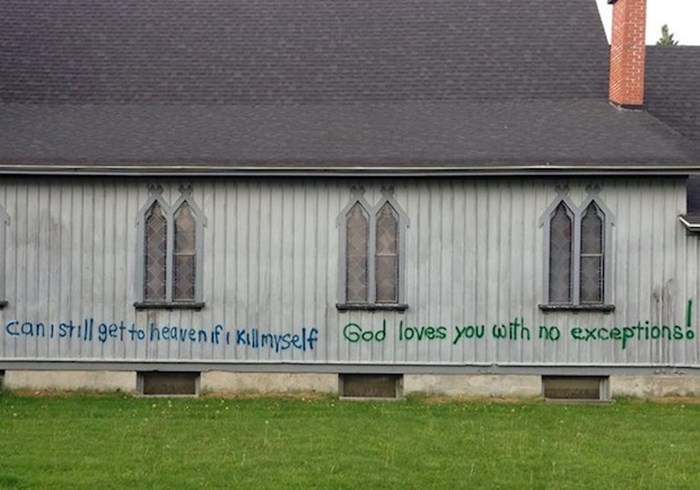 can i still get to heaven if i kill myself
God loves you with no exceptions!